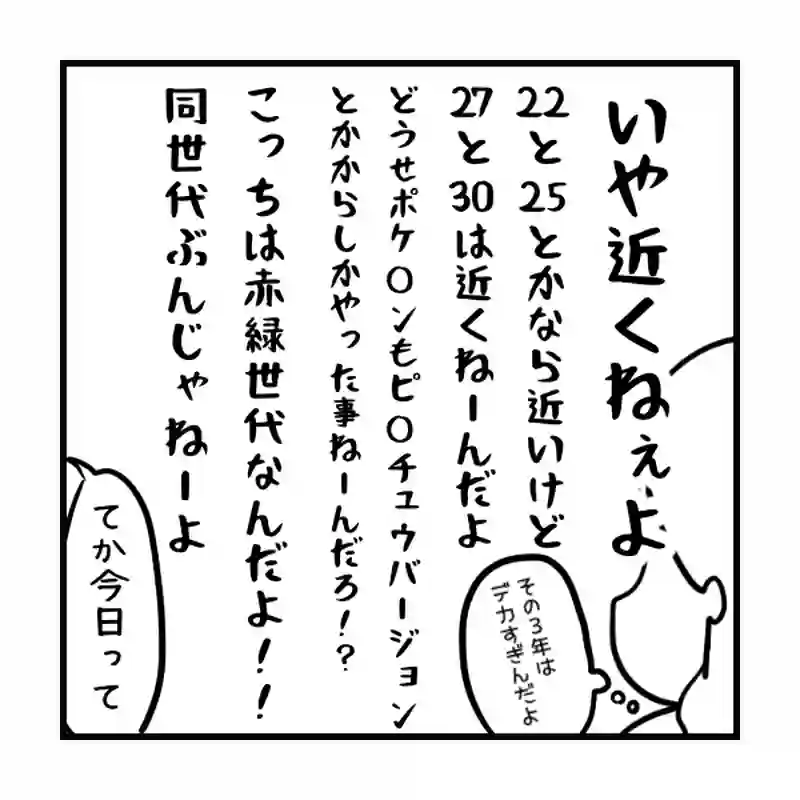 いや近くねぇよ
22と25とかなら近いけど
27と30は近くねーんだよ
どうせポケ〇ンもピ〇チュウバージョン
とかからしかやった事ねーんだろ！？
こっちは赤緑世代なんだよ！！
同世代ぶんじゃねーよ
その3年は
デカすぎんだよ
てか今日って